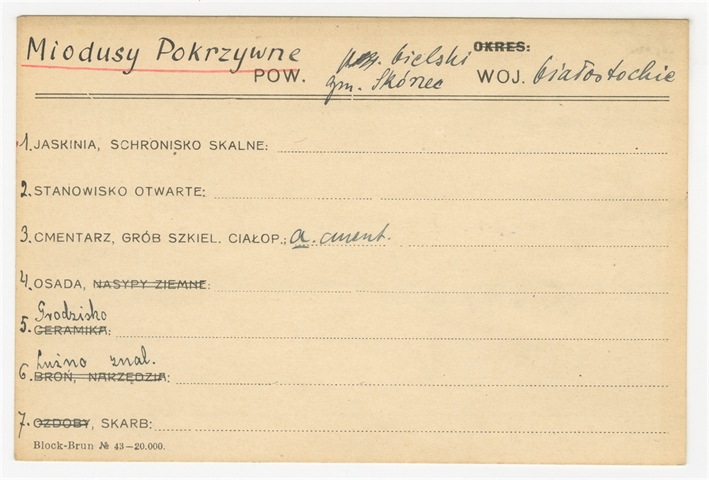 Miodusy Pokrzywne
POW. pow. bielski OKRES:
gm. Skórzec WOJ. białostockie
1. JASKINIA, SCHRONISKO SKALNE:
2. STANOWISKO OTWARTE:
3. CMENTARZ, GRÓB SZKIEL. CIAŁOP.: a. cment.
4. OSADA, NASYPY ZIEMNE:
Grodzisko
5. CERAMIKA:
Luźno znal.
6. BROŃ, NARZĘDZIA:
7. OZDOBY, SKARB:
Block-Brun № 43—20.000.